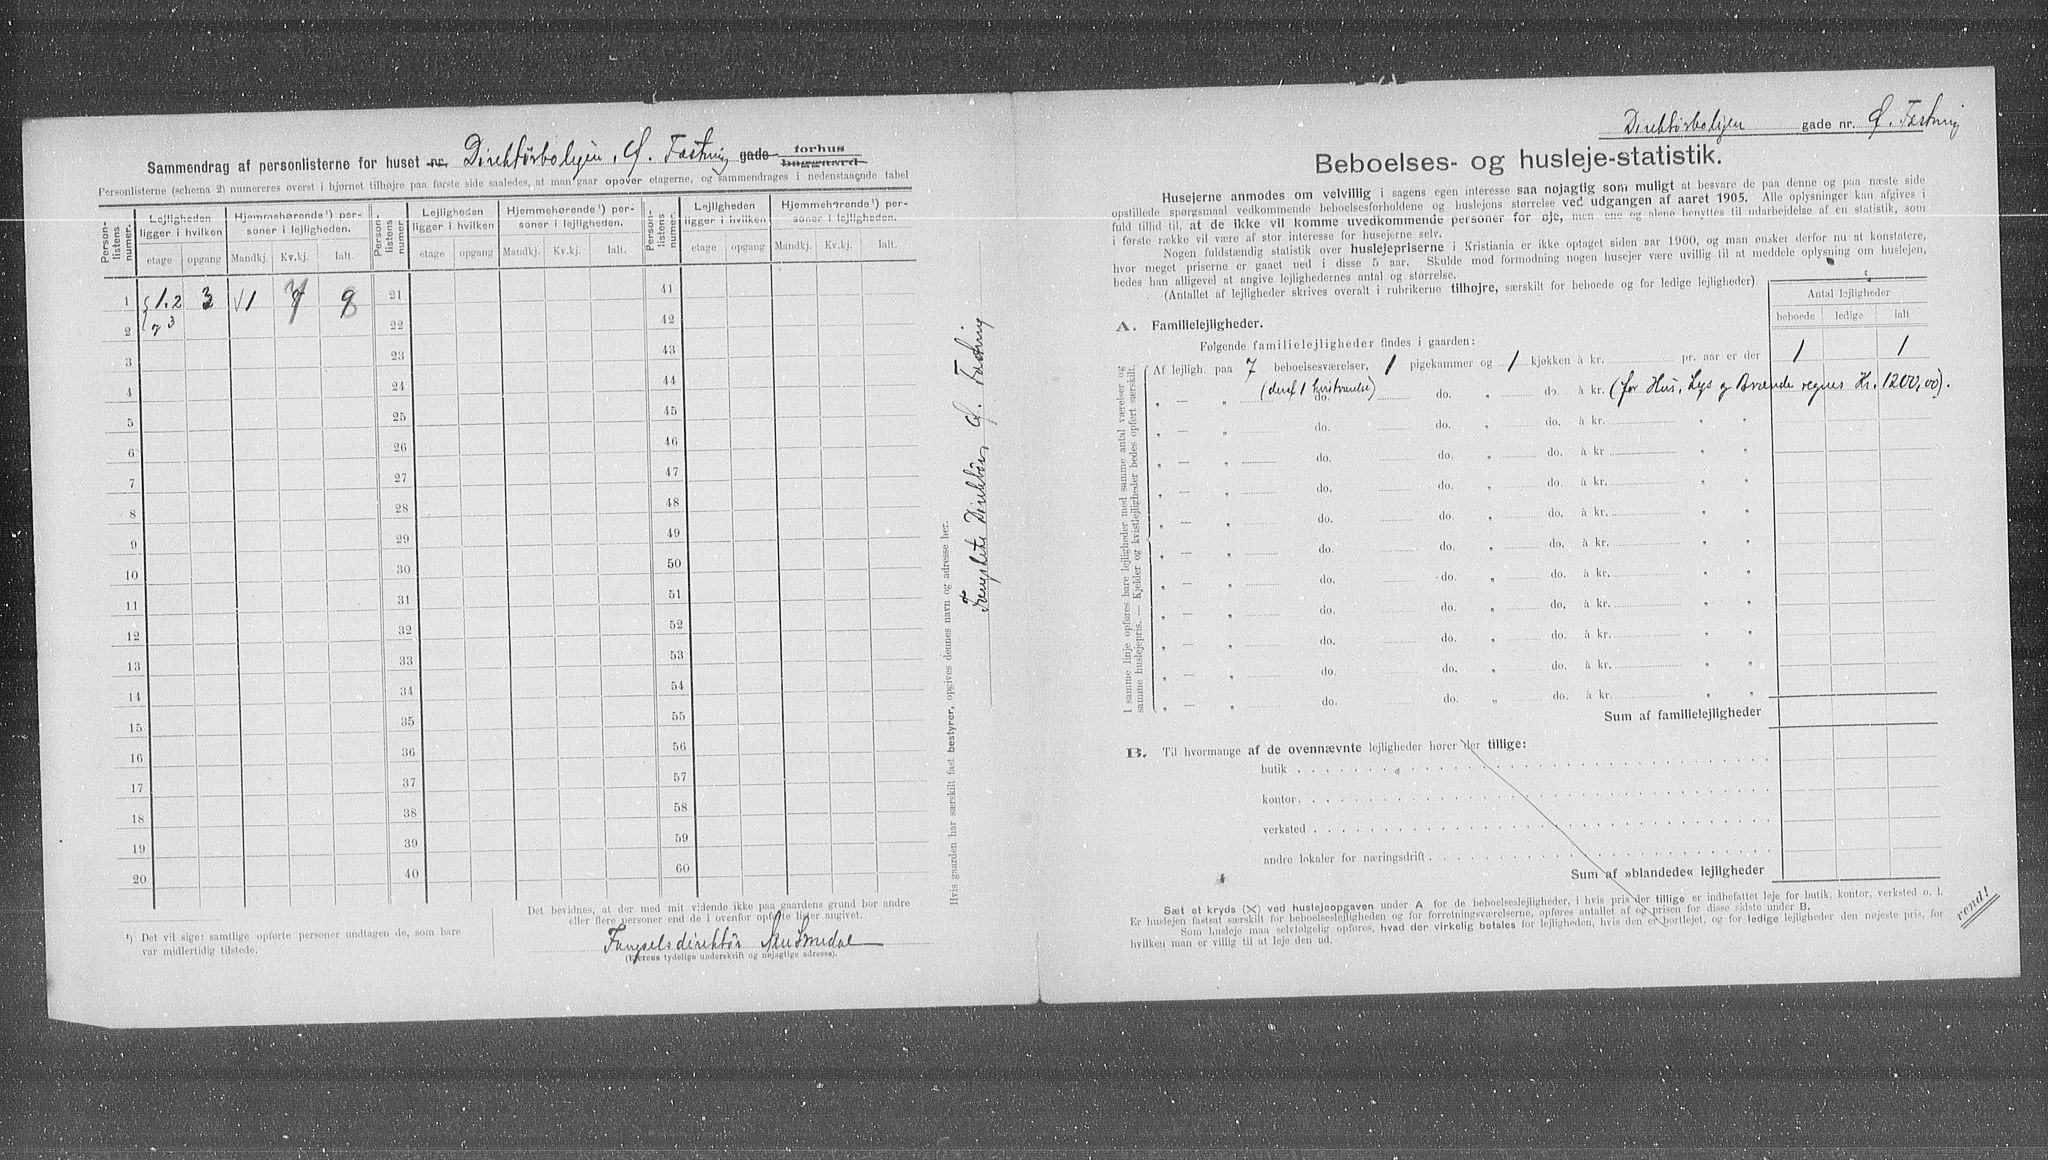 Sammendrag af personlisterne for huset nr. Direktørboligen, Ø. Fæstning gade forhus baggaard
Personlisterne (schema 2) numereres øverst i hjørnet tilhøjre paa første side saaledes, at man gaar opover etagerne, og sammendrages i nedenstaaende tabel
Person-listens numer. Lejligheden ligger i hvilken Hjemmehørende¹) personer i lejligheden. Person-listens numer Lejligheden ligger i hvilken Hjemmehørende¹) personer i lejligheden. Person-listens numer. Lejligheden ligger i hvilken Hjemmehørende¹) personer i lejligheden.
etage opgang Mandkj. Kv.kj. Ialt. etage opgang Mandkj. Kv.kj. Ialt. etage opgang Mandkj. Kv.kj. Ialt.
1 1. 2 3 1 21 41
2 3 22 42
3 23 43
4 24 44
5 25 45
6 26 46
7 27 47
8 28 48
9 29 49
10 30 50
11 31 51
12 32 52
13 33 53
14 34 54
15 35 55
16 36 56
17 37 57
18 38 58
19 39 59
20 40 60
¹) Det vil sige: samtlige opførte personer undtagen de, som bare
var midlertidig tilstede.
Det bevidnes, at der med mit vidende ikke paa gaardens grund bor andre
eller flere personer end de i ovenfor opførte lister angivet.
Fængselsdirektør Smedal
(Ejerens tydelige underskrift og nøjagtige adresse).
Hvis gaarden har særskilt fast bestyrer, opgives dennes navn og adresse her.
Fængslets Direktør, Ø. Fæstning
Direktørboligen gade nr. Ø. Fæstning
Beboelses- og husleje-statistik.
Husejerne anmodes om velvillig i sagens egen interesse saa nøjagtig som muligt at besvare de paa denne og paa næste side
opstillede spørgsmaal vedkommende beboelsesforholdene og huslejens størrelse ved udgangen af aaret 1905. Alle oplysninger kan afgives i
fuld tillid til, at de ikke vil komme uvedkommende personer for øje, men ene og alene benyttes til udarbejdelse af en statistik, som
i første række vil være af stor interesse for husejerne selv.
Nogen fuldstændig statistik over huslejepriserne i Kristiania er ikke optaget siden aar 1900, og man ønsker derfor nu at konstatere,
hvor meget priserne er gaaet ned i disse 5 aar. Skulde mod formodning nogen husejer være uvillig til at meddele oplysning om huslejen,
bedes han alligevel at angive lejlighedernes antal og størrelse.
(Antallet af lejligheder skrives overalt i rubrikerne tilhøjre, særskilt for beboede og for ledige lejligheder)
Antal lejligheder
beboede ledige ialt
A. Familielejligheder.
Følgende familielejligheder findes i gaarden:
I samme linje opføres bare lejligheder med samme antal værelser og
samme huslejepris. — Kjelder og kvistlejligheder bedes opført særskilt.
Af lejligh. paa 7 beboelsesværelser, 1 pigekammer og 1 kjøkken à kr. pr. aar er der 1 1
„ — „ (deraf 1 kvistværelse) do. do. „ do. à kr. (for Hus, Lys og Brænde regnes Kr. 1200,00).
„ — „ do. do. „ do. à kr. „ „
„ — „ do. do. „ do. à kr „ „
„ — „ do. do. „ do. à kr. „ „
„ — „ do. do. „ do. à kr. „ „
„ — „ do. do. „ do. à kr. „ „
„ — „ do. do. „ do. à kr. „ „
„ — „ do. do. „ do. à kr. „ „
„ — „ do. do. „ do. à kr. „ „
„ — „ do. do. „ do. à kr. „ „
„ — „ do. do. „ do. à kr. „ „
Sum af familielejligheder
B. Til hvormange af de ovennævnte lejligheder hører der tillige:
butik
kontor
verksted
andre lokaler for næringsdrift
Sum af »blandede« lejligheder
Sæt et kryds (X) ved huslejeopgaven under A for de beboelseslejligheder, i hvis pris der tillige er indbefattet leje for butik, kontor, verksted o. l.
Er huslejen fastsat særskilt for beboelseslejligheden og for forretningsværelserne, opføres antallet af og prisen for disse sidste under B.
Som husleje maa selvfølgelig opføres, hvad der virkelig betales for lejligheden, hvis den er bortlejet, og for ledige lejligheder den nøjeste pris, for
hvilken man er villig til at leje den ud.
vend!